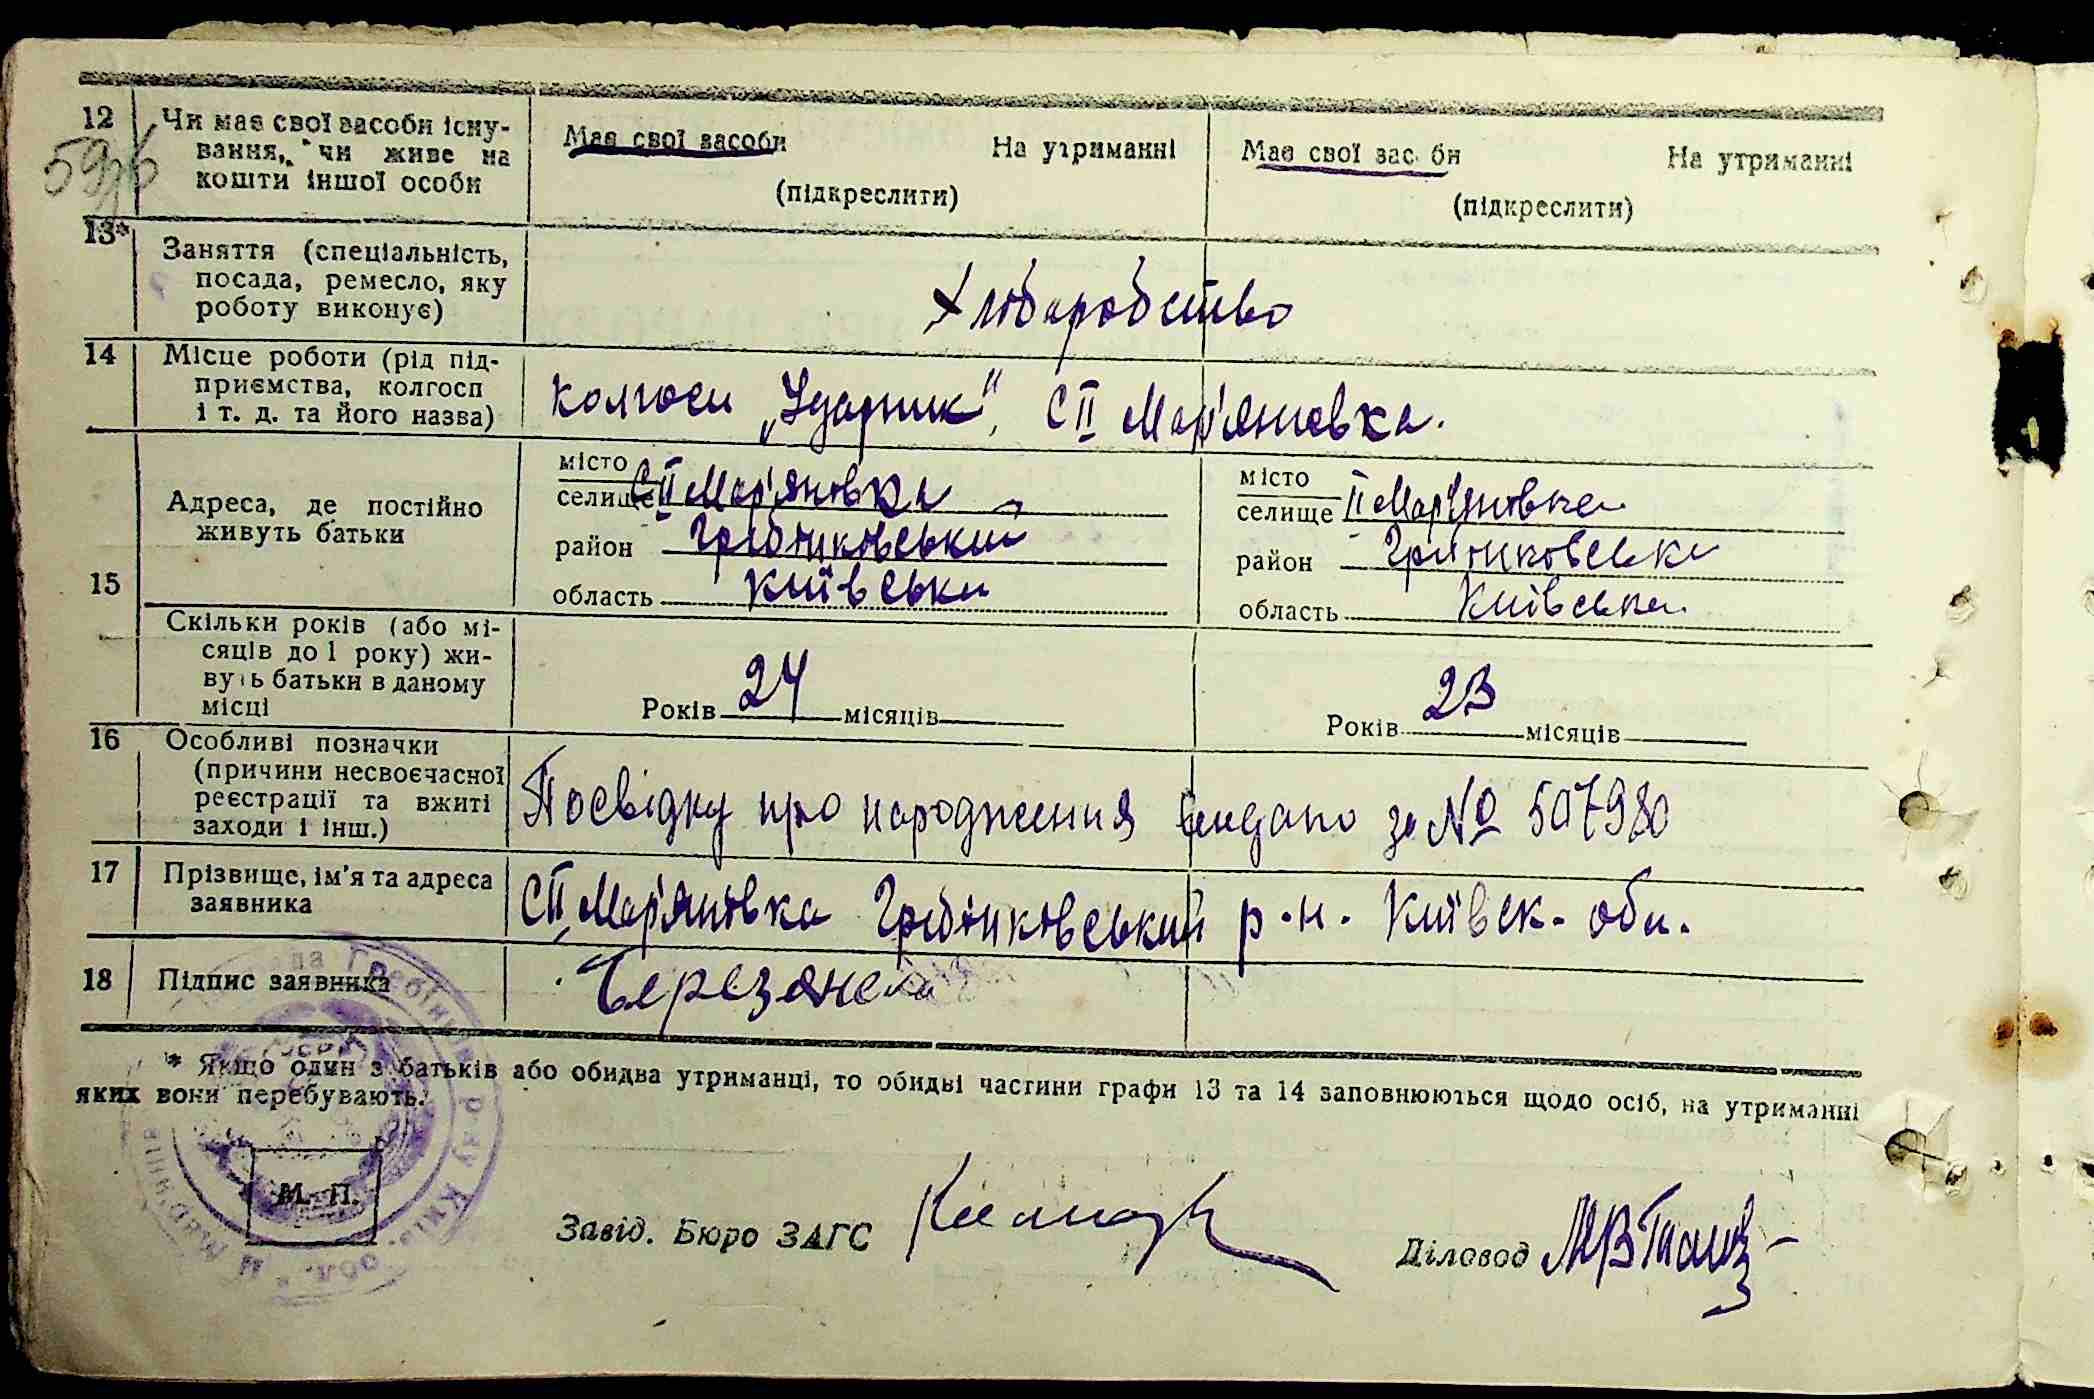 12 Чи має свої засоби існу-
вання, чи живе на
кошти іншої особи
Має свої засоби На утриманні
(підкреслити)
Має свої зас би На утриманні
(підкреслити)
13* Заняття (спеціальність,
посада, ремесло, яку
роботу виконує)
Хліборобство
14 Місце роботи (рід під-
приємства, колгосп
і т. д. та його назва)
колгосп „Ударник", С II Мар'яновка.
15 Адреса, де постійно
живуть батьки
місто
селище С II Мар'яновка
район Гребінковський
область Київська
місто
селище II Мар'яновка
район Гребінковськи
область Київська
Скільки років (або мі-
сяців до 1 року) жи-
вуть батьки в даному
місці
Років 24 місяців
Років 23 місяців
16 Особливі позначки
(причини несвоєчасної
реєстрації та вжиті
заходи і інш.)
Посвідку про народження видано за № 507980
17 Прізвище, ім'я та адреса
заявника
С II Мар'яновка Гребінковський р-н. Київск. обл.
18 Підпис заявника
* Якщо один з батьків або обидва утриманці, то обидві частини графи 13 та 14 заповнюються щодо осіб, на утриманні
яких вони перебувають.
М. П.
Завід. Бюро ЗАГС
Діловод